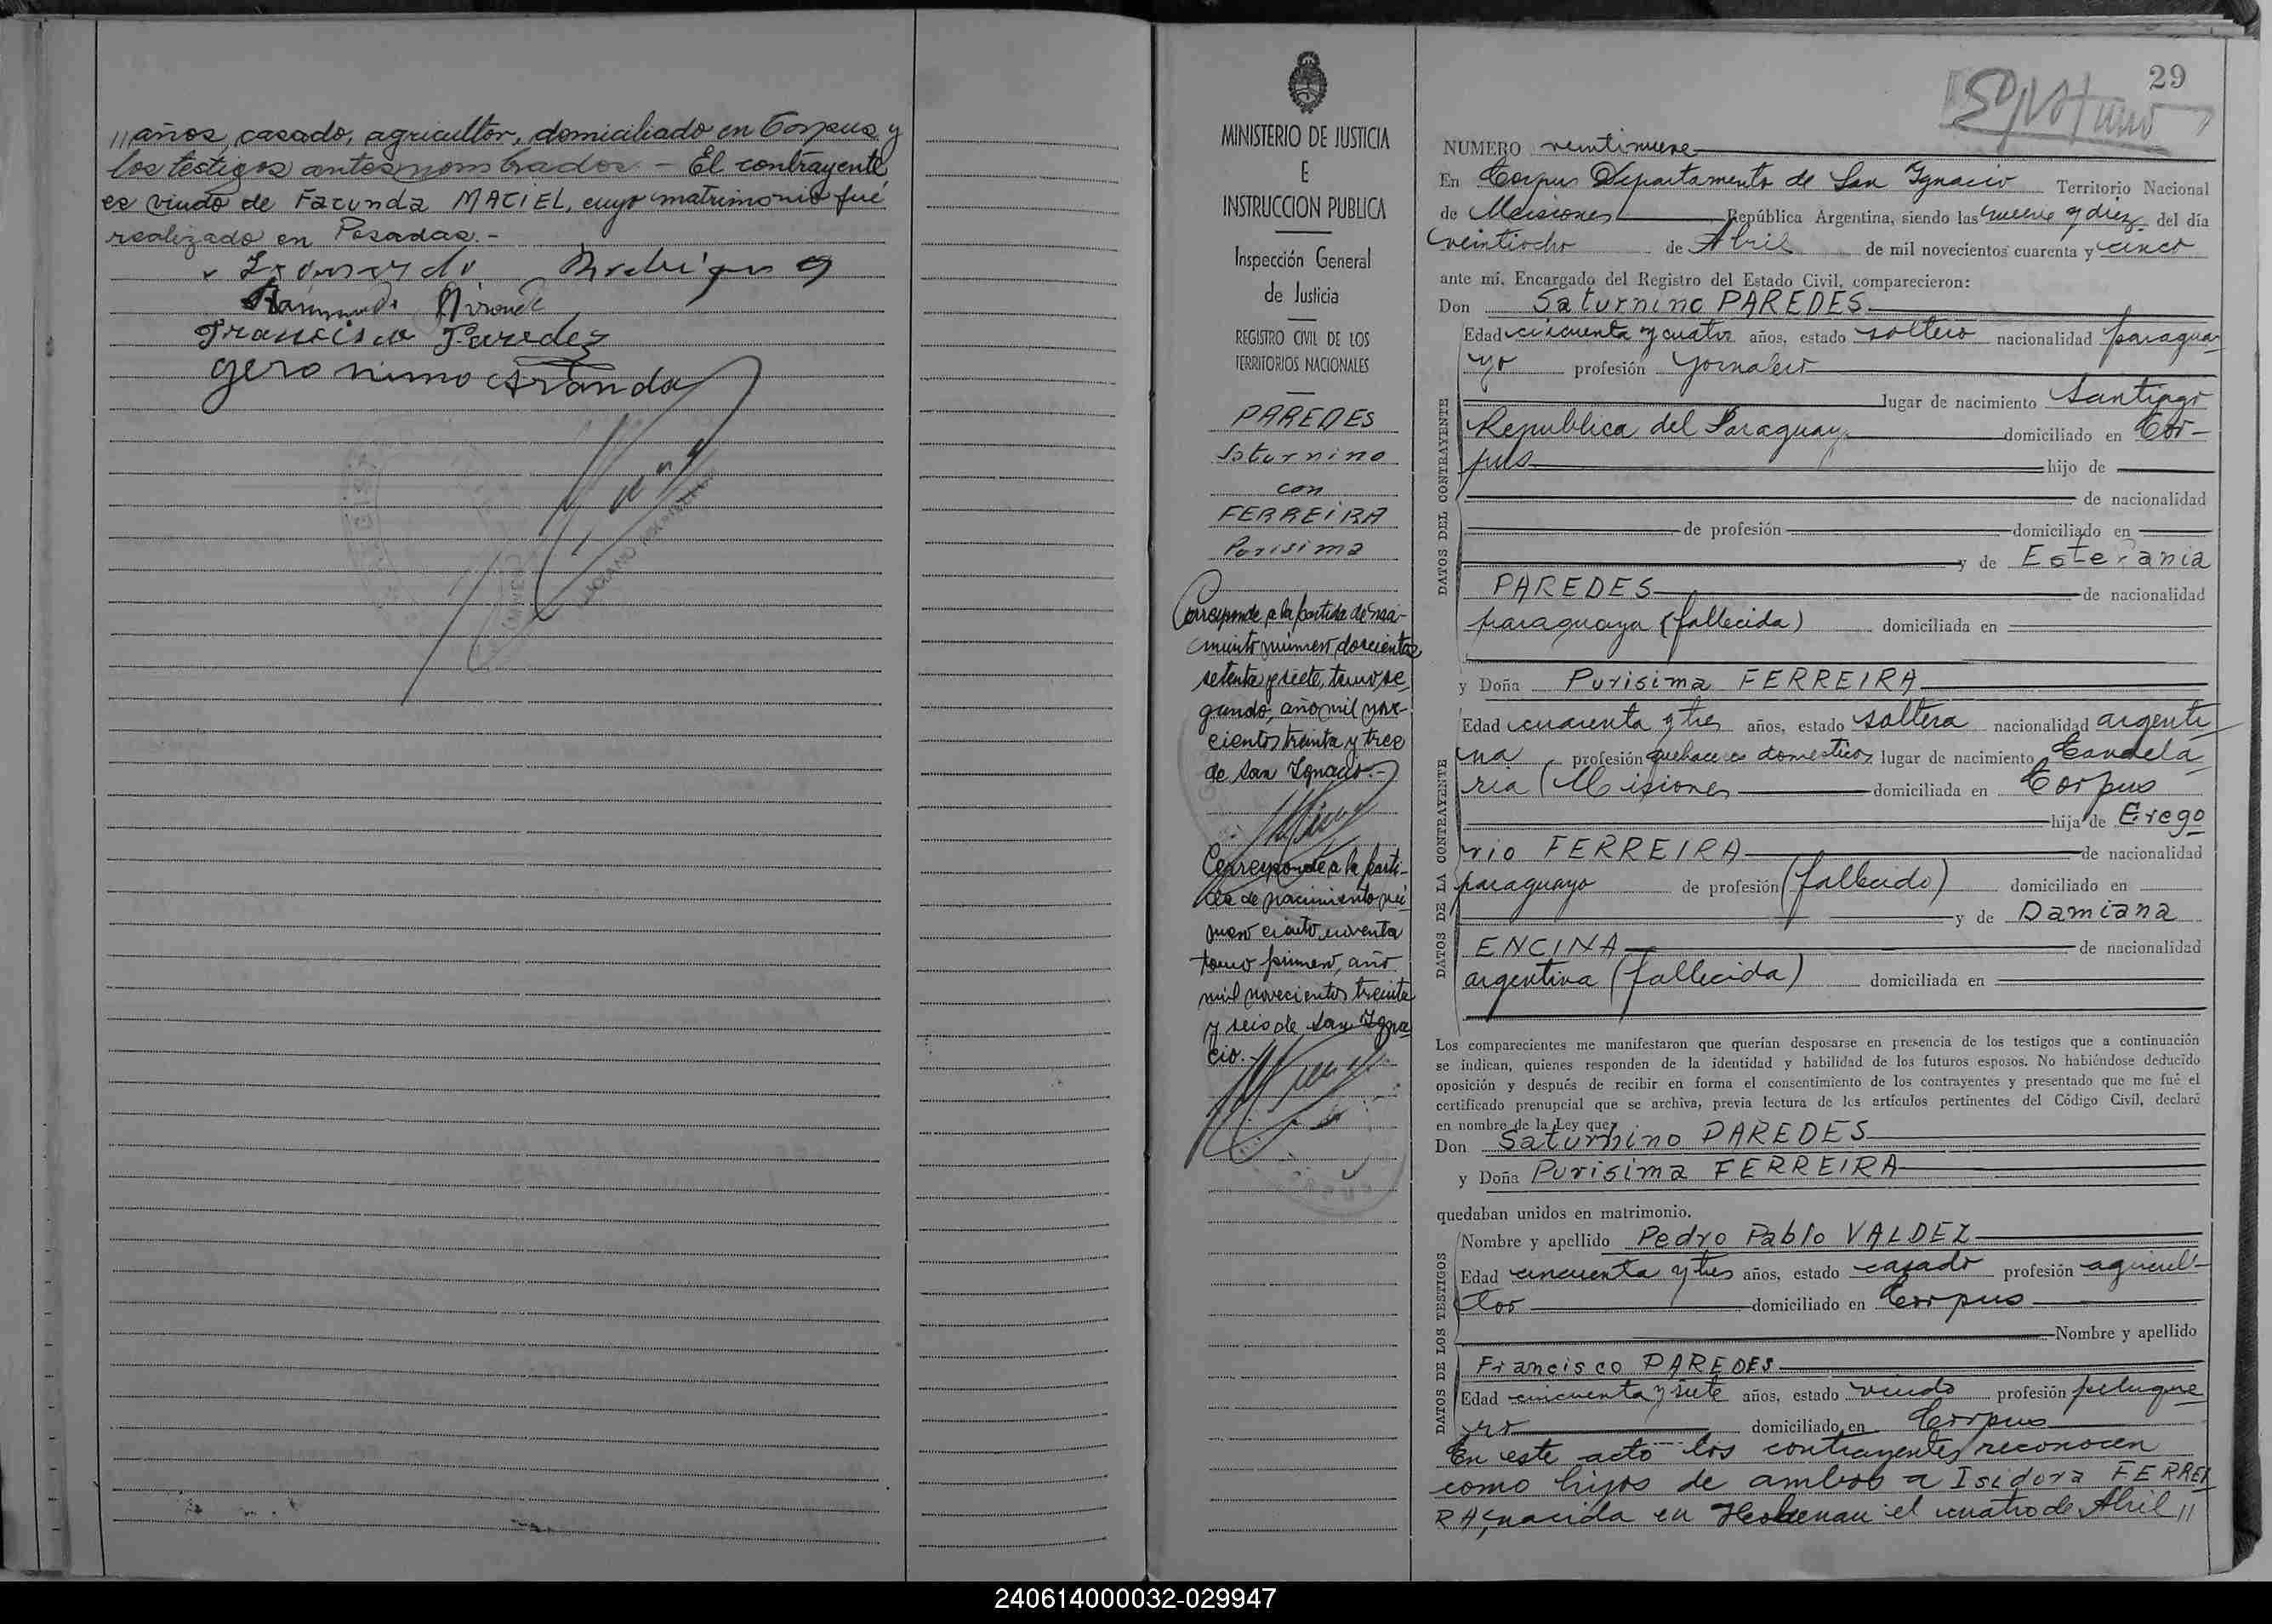 //años, casado, agricultor, domiciliado en Corpus y
los testigos antes nombrados. - El contrayente
es viudo de Facunda MACIEL, cuyo matrimonio fué
realizado en Posadas. -
Francisco Paredez
geronimo Aranda
MINISTERIO DE JUSTICIA
E
INSTRUCCION PUBLICA
Inspección General
de Justicia
REGISTRO CIVIL DE LOS
TERRITORIOS NACIONALES
PAREDES
Saturnino
con
FERREIRA
Purisima
Corresponde a la partida de naci-
miento número doscientos
setenta y siete, tomo se-
gundo, año mil nove-
cientos treinta y tres
de San Ignacio.-
Corresponde a la parti-
da de nacimiento nú-
mero ciento noventa
tomo primero, año
mil novecientos treinta
y seis de San Igna
cio.-
29
NUMERO veintinueve
En Corpus Departamento de San Ignacio Territorio Nacional
de Misiones República Argentina, siendo las nueve y diez del día
veintiocho de Abril de mil novecientos cuarenta y cinco
ante mí, Encargado del Registro del Estado Civil, comparecieron:
Don Saturnino PAREDES
DATOS DEL CONTRAYENTE
Edad cincuenta y cuatro años, estado soltero nacionalidad paragua-
yo profesión jornalero
lugar de nacimiento Santiago
Republica del Paraguay domiciliado en Cor-
pus hijo de
de nacionalidad
de profesión domiciliado en
y de Estefania
PAREDES de nacionalidad
paraguaya (fallecida) domiciliada en
y Doña Purisima FERREIRA
DATOS DE LA CONTRAYENTE
Edad cuarenta y tres años, estado soltera nacionalidad argenti
na profesión quehaceres domesticos lugar de nacimiento Candela
ria (Misiones domiciliada en Corpus
hija de Grego
rio FERREIRA de nacionalidad
paraguayo de profesión (fallecido) domiciliado en
y de Damiana
ENCINA de nacionalidad
argentina (fallecida) domiciliada en
Los comparecientes me manifestaron que querían desposarse en presencia de los testigos que a continuación
se indican, quienes responden de la identidad y habilidad de los futuros esposos. No habiéndose deducido
oposición y después de recibir en forma el consentimiento de los contrayentes y presentado que me fué el
certificado prenupcial que se archiva, previa lectura de los artículos pertinentes del Código Civil, declaré
en nombre de la Ley que:
Don Saturnino PAREDES
y Doña Purisima FERREIRA
quedaban unidos en matrimonio.
DATOS DE LOS TESTIGOS
Nombre y apellido Pedro Pablo VALDEZ
Edad cincuenta y tres años, estado casado profesión agricul-
tor domiciliado en Corpus
Nombre y apellido
Francisco PAREDES
Edad cincuenta y siete años, estado viudo profesión peluque
ro domiciliado en Corpus
En este acto los contrayentes reconocen
como hijos de ambos a Isidora FERREI
RA, nacida en Hohenau el cuatro de Abril //
240614000032-029947